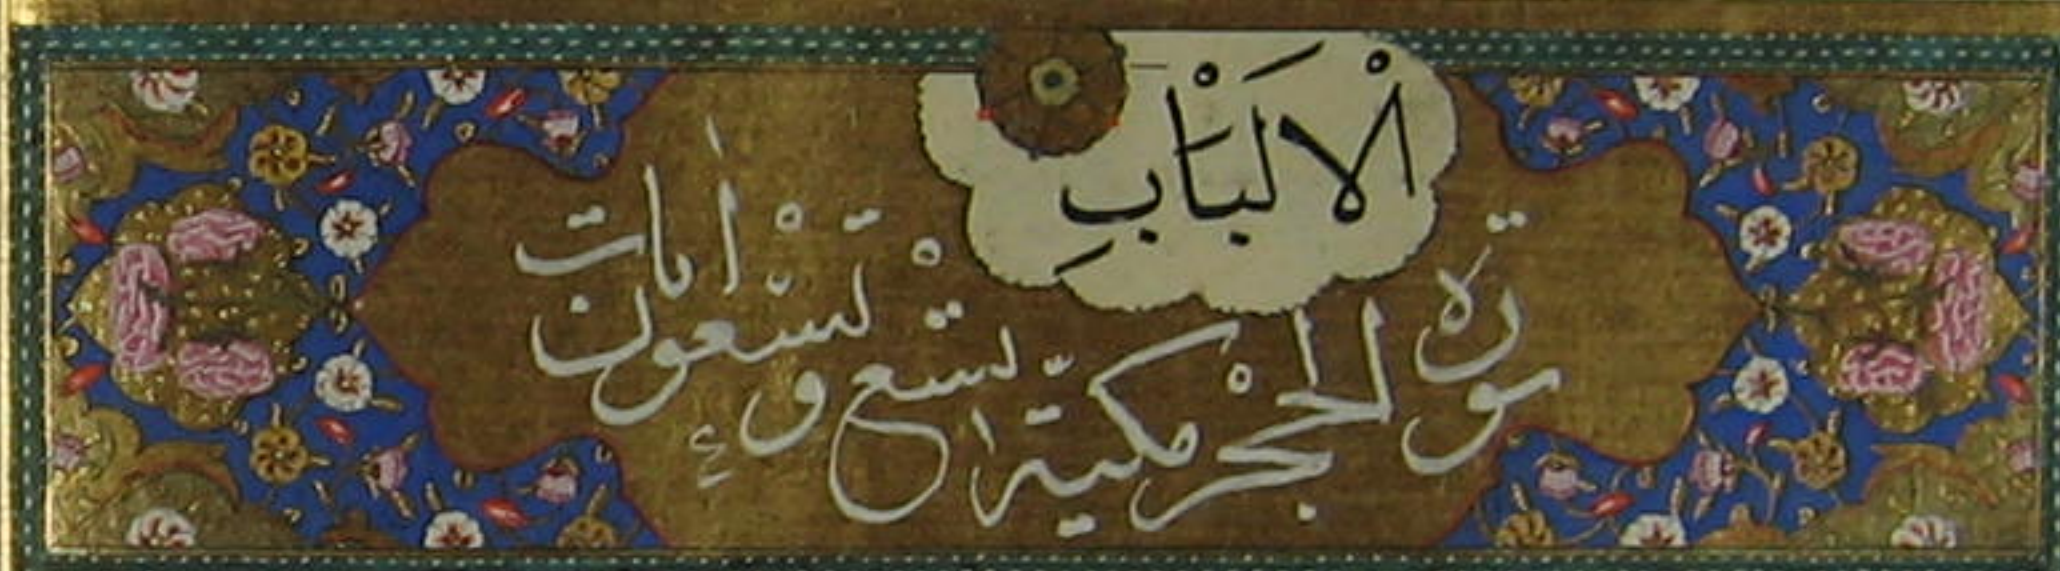 الْاَلْبَابِ
سورة الحجر مكيّة تسع وتسعون اٰيات